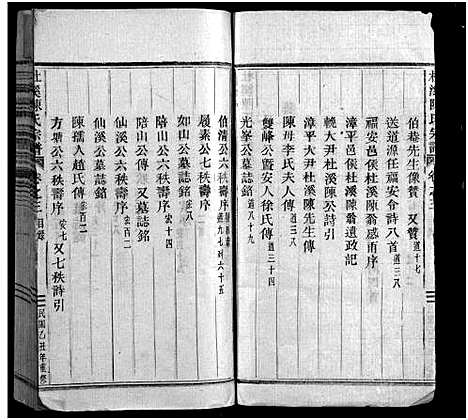 杜溪陳氏宗譜 卷之三
伯巷先生像贊 又贊 道十七
送道源任福安令詩八首 道三八
福安邑侯杜溪陳翁感甫序
漳平邑侯杜溪陳翁遺政記
漳平大尹杜溪陳先生傳
輓大尹杜溪陳公詩引
陳母李氏夫人傳 道三八
雙峰公暨安人徐氏傳 道三十四
光峯公墓誌銘 道八十九
伯清公六秩壽序
履素公七秩壽序
如山公墓誌銘 宏八
陪山公六秩壽序 宏十四
陪山公傳 又墓誌銘
仙溪公墓誌銘 宏百二
仙溪公六秩壽序
陳孺人趙氏傳 宏百二
方塘公六秩壽序 宏七 又七秩詩引
杜溪陳氏宗譜 卷之三 目錄 民國乙丑年重修